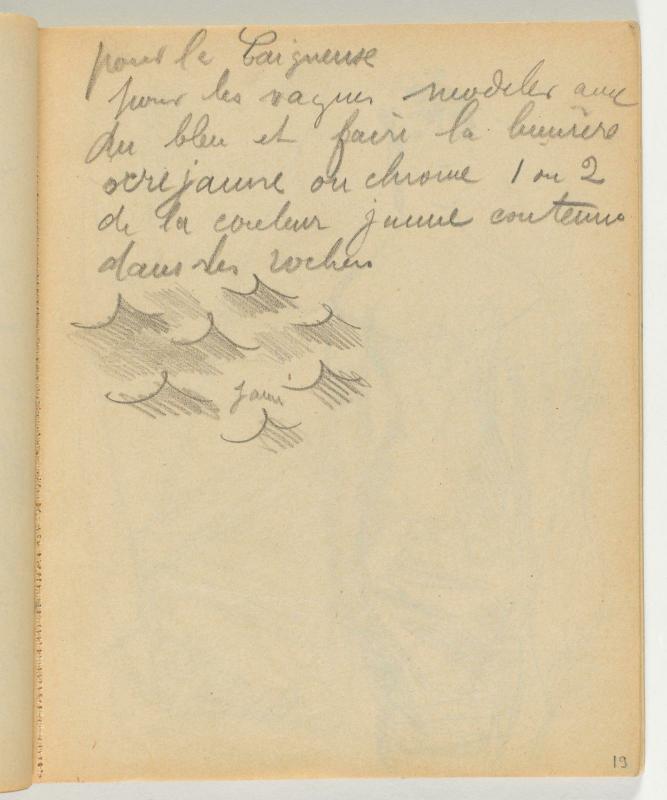 pour la Baigneuse
pour les vagues modeler avec
du bleu et faire la lumière
ocre jaune ou chrome 1 ou 2
de la couleur jaune contenue
dans les rochers
jaune
19